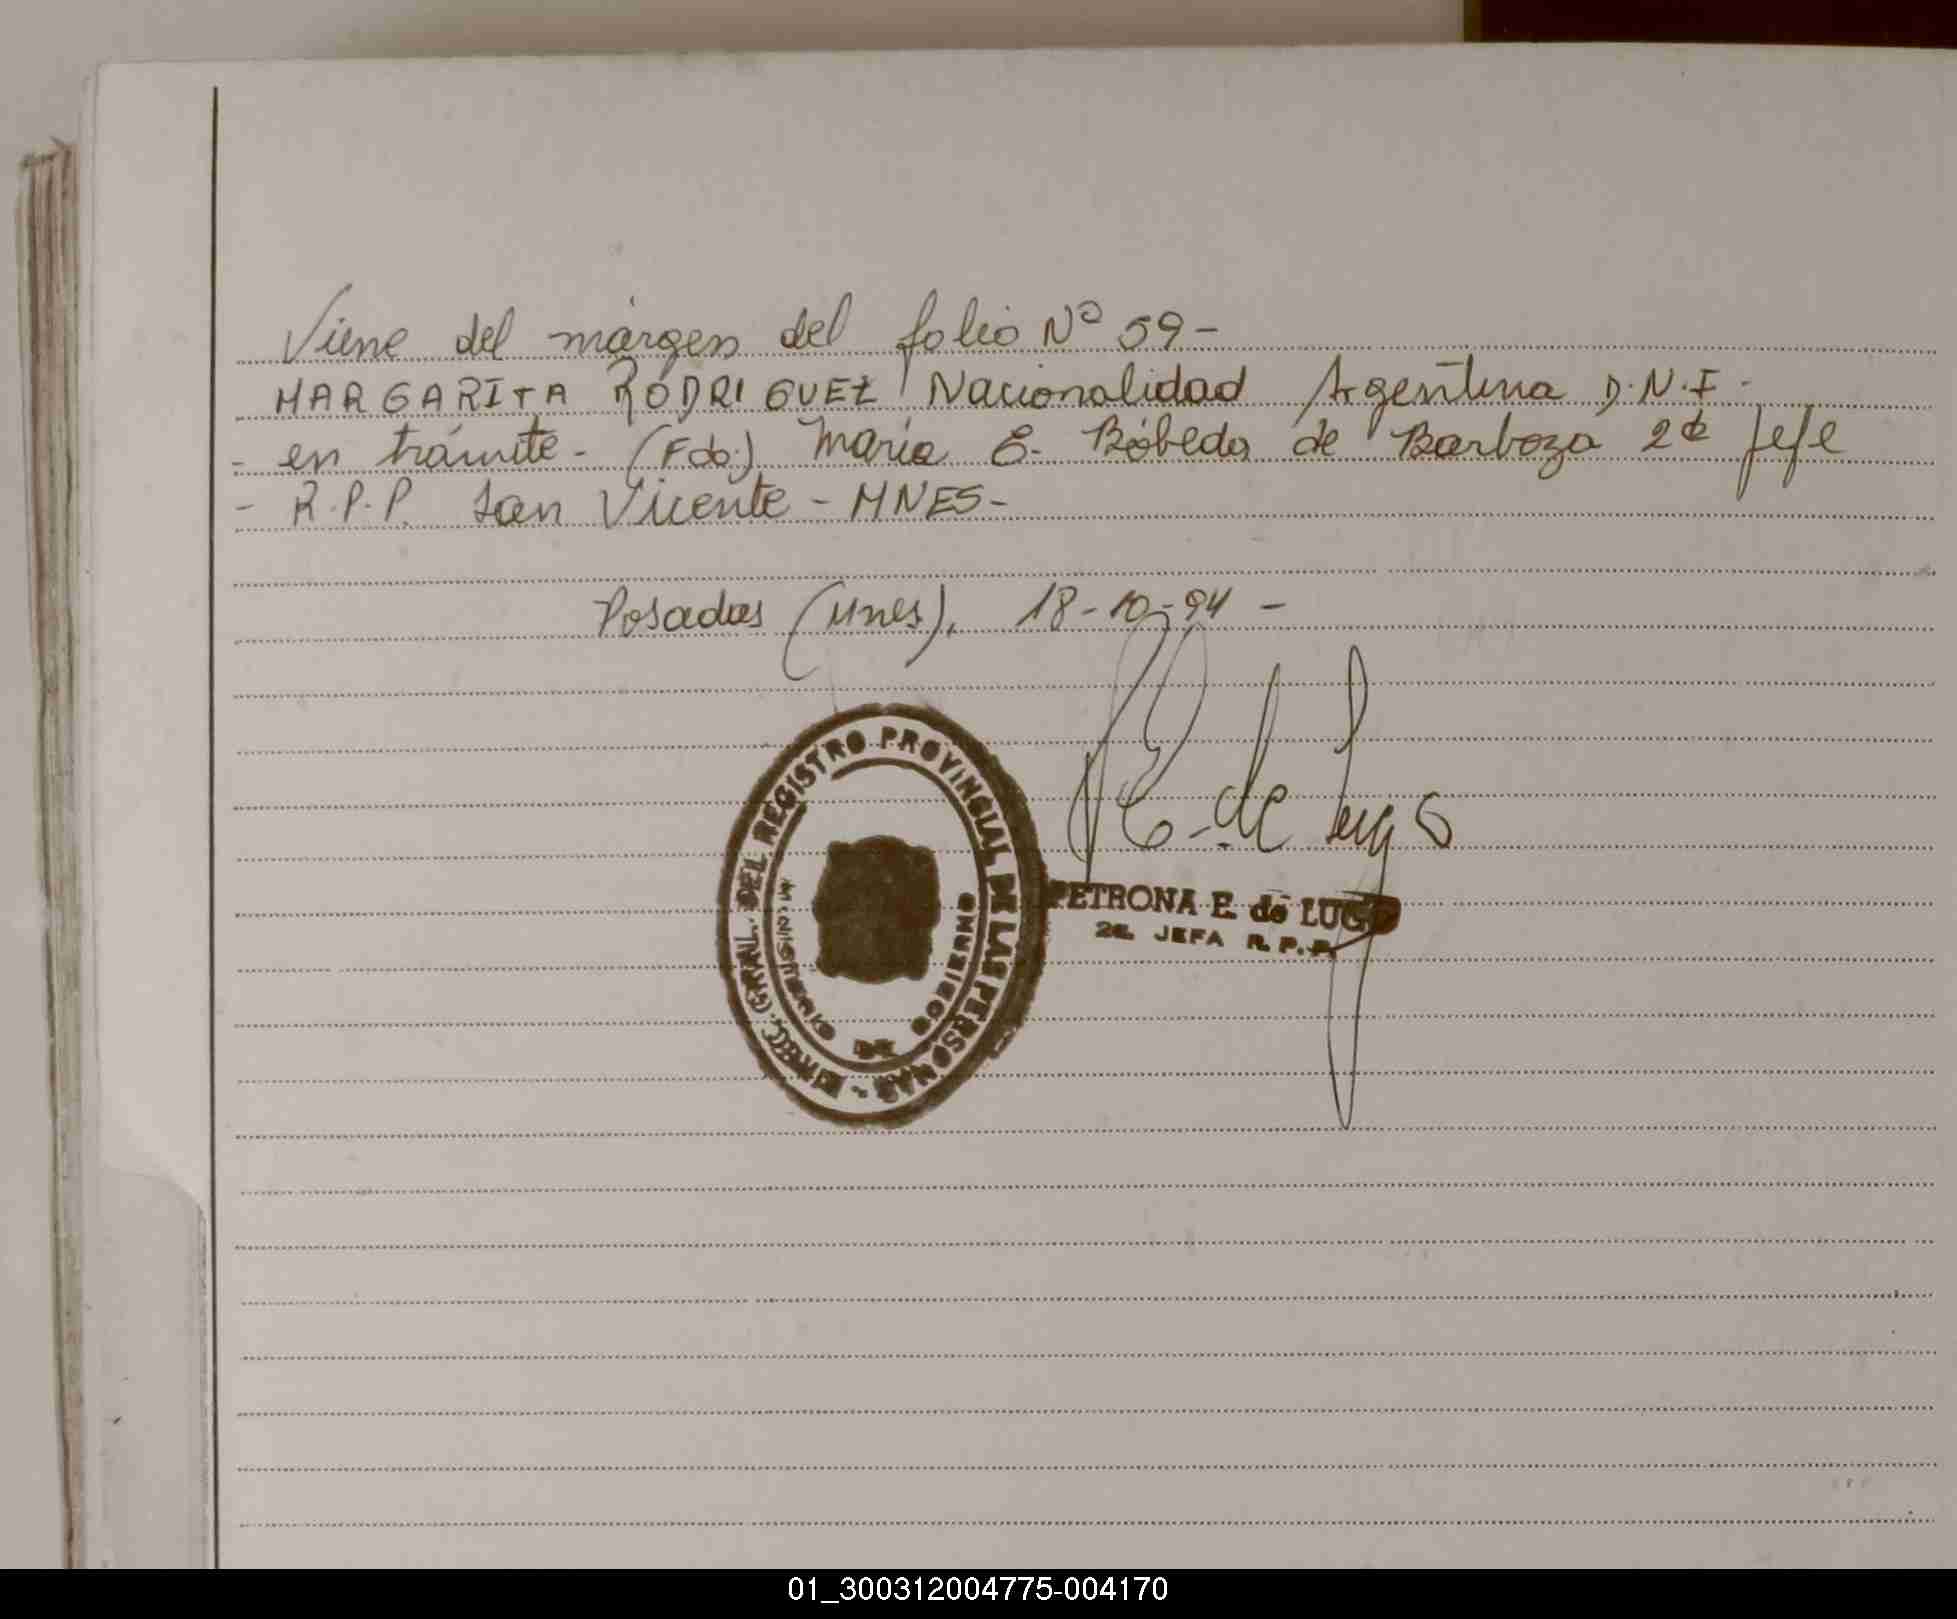 Viene del márgen del folio Nº 59-
MARGARITA RODRIGUEZ Nacionalidad Argentina D.N.I.-
- en trámite - (Fdo.) María E. Bóbeda de Barboza 2da Jefe
- R.P.P. San Vicente - MNES-
Posadas (Mnes), 18-10-94 -
P. E. de Lugo
DIREC. GRAL. DEL REGISTRO PROVINCIAL DE LAS PERSONAS -
MINISTERIO DE GOBIERNO
PETRONA E. de LUGO
2a. JEFA R. P. P.
01_300312004775-004170